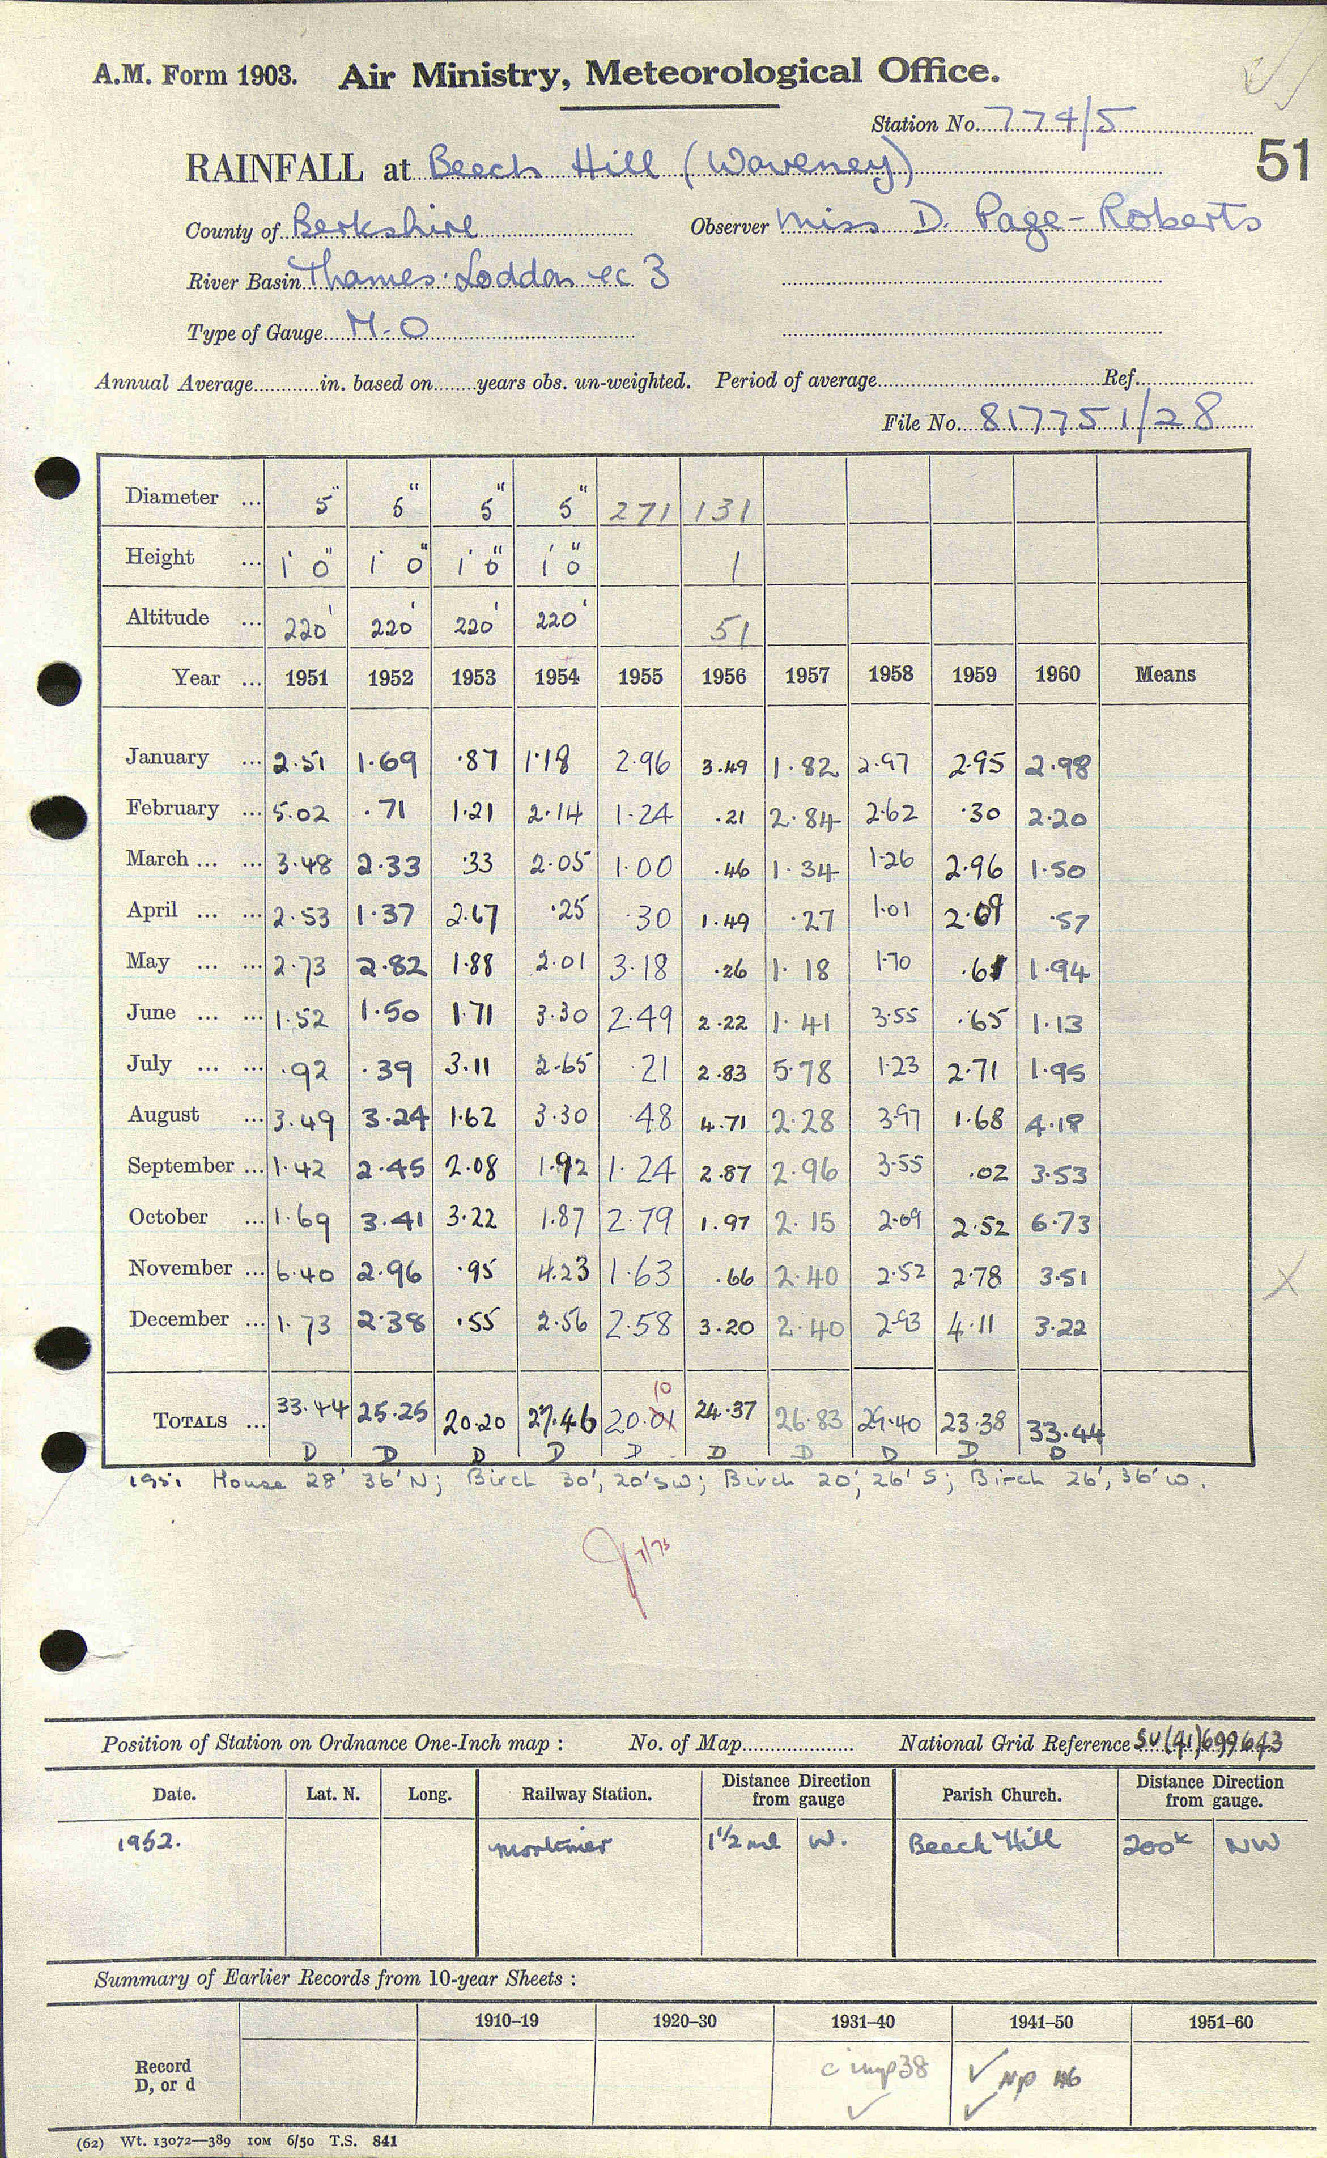 A.M. Form 1903. Air Ministry, Meteorological Office.
Station No. 774/5
51
RAINFALL at Beech Hill (Waveney)
County of Berkshire Observer Miss D. Page-Roberts
River Basin Thames: Loddon ec 3
Type of Gauge M.O
Annual Average in. based on years obs. un-weighted. Period of average Ref.
File No. 817751/28
Diameter ... 5" 5" 5" 5" 271 131
Height ... 1' 0" 1' 0" 1' 0" 1' 0" 1
Altitude ... 220' 220' 220' 220' 51
Year ... 1951 1952 1953 1954 1955 1956 1957 1958 1959 1960 Means
January ... 2.51 1.69 .87 1.18 2.96 3.49 1.82 2.97 2.95 2.98
February ... 5.02 .71 1.21 2.14 1.24 .21 2.84 2.62 .30 2.20
March ... ... 3.48 2.33 .33 2.05 1.00 .46 1.34 1.26 2.96 1.50
April ... ... 2.53 1.37 2.67 .25 .30 1.49 .27 1.01 2.69 .57
May ... ... 2.73 2.82 1.88 2.01 3.18 .26 1.18 1.70 .61 1.94
June ... ... 1.52 1.50 1.71 3.30 2.49 2.22 1.41 3.55 .65 1.13
July ... ... .92 .39 3.11 2.65 .21 2.83 5.78 1.23 2.71 1.95
August ... 3.49 3.24 1.62 3.30 .48 4.71 2.28 3.97 1.68 4.18
September ... 1.42 2.45 2.08 1.92 1.24 2.87 2.96 3.55 .02 3.53
October ... 1.69 3.41 3.22 1.87 2.79 1.97 2.15 2.09 2.52 6.73
November ... 6.40 2.96 .95 4.23 1.63 .66 2.40 2.52 2.78 3.51
December ... 1.73 2.38 .55 2.56 2.58 3.20 2.40 2.93 4.11 3.22
10
TOTALS ... 33.44 25.25 20.20 27.46 20.01 24.37 26.83 29.40 23.38 33.44
D D D D D D D D D D
1951 House 28' 36' N; Birch 30', 20' SW; Birch 20', 26' S; Birch 26', 36' W.
7/73
Position of Station on Ordnance One-Inch map : No. of Map National Grid Reference SU(41)699643
Date. Lat. N. Long. Railway Station. Distance from gauge Direction Parish Church. Distance from gauge. Direction
1952. Mortimer 1½ ml W. Beech Hill 200x NW
Summary of Earlier Records from 10-year Sheets :
1910–19 1920–30 1931–40 1941–50 1951–60
Record D, or d c imp 38 NP 46
(62) Wt. 13072—389 10M 6/50 T.S. 841